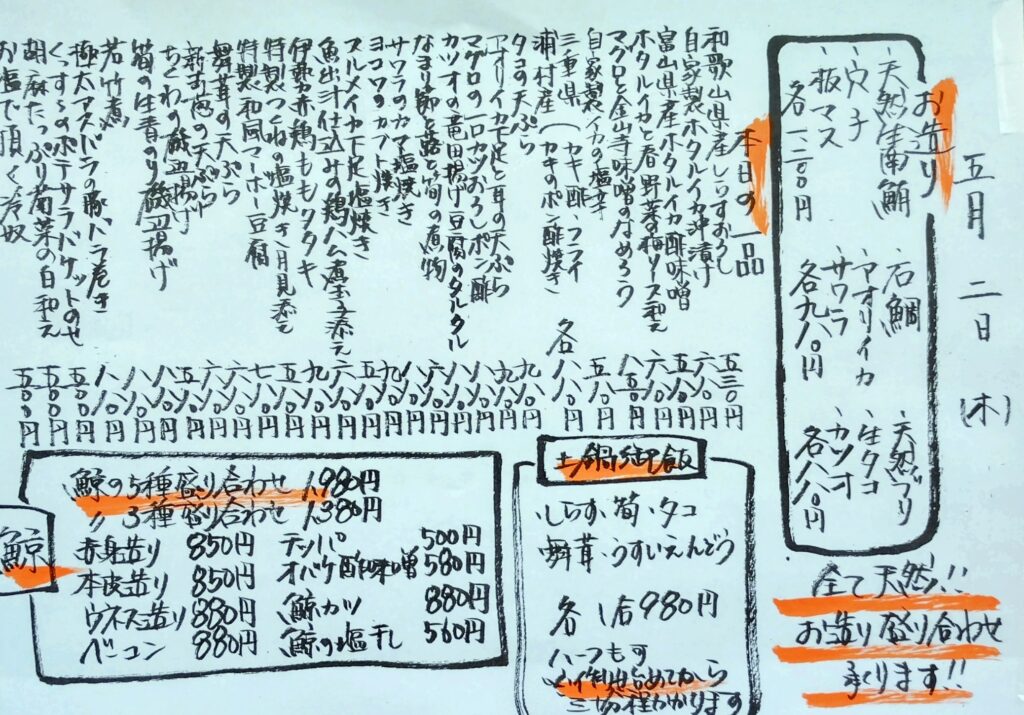 五月二日(木)
お造り
、天然生南鮪 、石鯛 、天然ブリ
、穴子 、アオリイカ 、生タコ
、板マス 、サワラ 、カツオ
各一二〇〇円 各九八〇円 各八八〇円
全て天然!!
お造り盛り合わせ
承ります!!
本日の一品
和歌山県産しらすおろし 五三〇円
自家製ホタルイカ沖漬け 六八〇円
富山県産ホタルイカ酢味噌
ホタルイカと春野菜の梅ソース和え
マグロと金山寺味噌のなめろう
自家製イカの塩辛
三重県 カキ酢・フライ
浦村産(カキのポン酢焼き 各
タコの天ぷら
アオリイカ下足と耳の天ぷら
マグロの一口カツおろしポン酢
カツオの竜田揚げ豆腐のタルタル
なまり節と蕗と筍の煮物
サワラのカマ塩焼き
ヨコワのカブト焼き
スルメイカ下足塩焼き
魚出汁仕込みの鶏ハム煮玉子添え
伊勢赤鶏ももタタキ
特製つくねの塩焼き月見添え
特製和風マーボー豆腐
舞茸の天ぷら
新玉葱の天ぷら
ちくわの磯辺揚げ
筍の生青のり磯辺揚げ
若竹煮
極太アスパラの豚バラ巻き
くっすぅのポテサラバケットのせ
胡麻たっぷり菊菜の白和え 五五〇円
お塩で頂く冷奴 五〇〇円
土鍋御飯
・しらす・筍・タコ
舞茸・うすいえんどう
各1合980円
ハーフもす
三〇分程かかります
鯨
鯨の5種盛り合わせ 1,980円
〃 3種盛り合わせ 1,380円
赤身造り 850円 テッパ 500円
本皮造り 850円 オバケ酢味噌 580円
ウネス造り 880円 鯨カツ 880円
ベーコン 880円 鯨の塩干し 560円